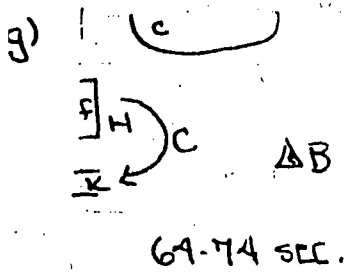 g)
c
f H C
K
B
64-74 SEC.